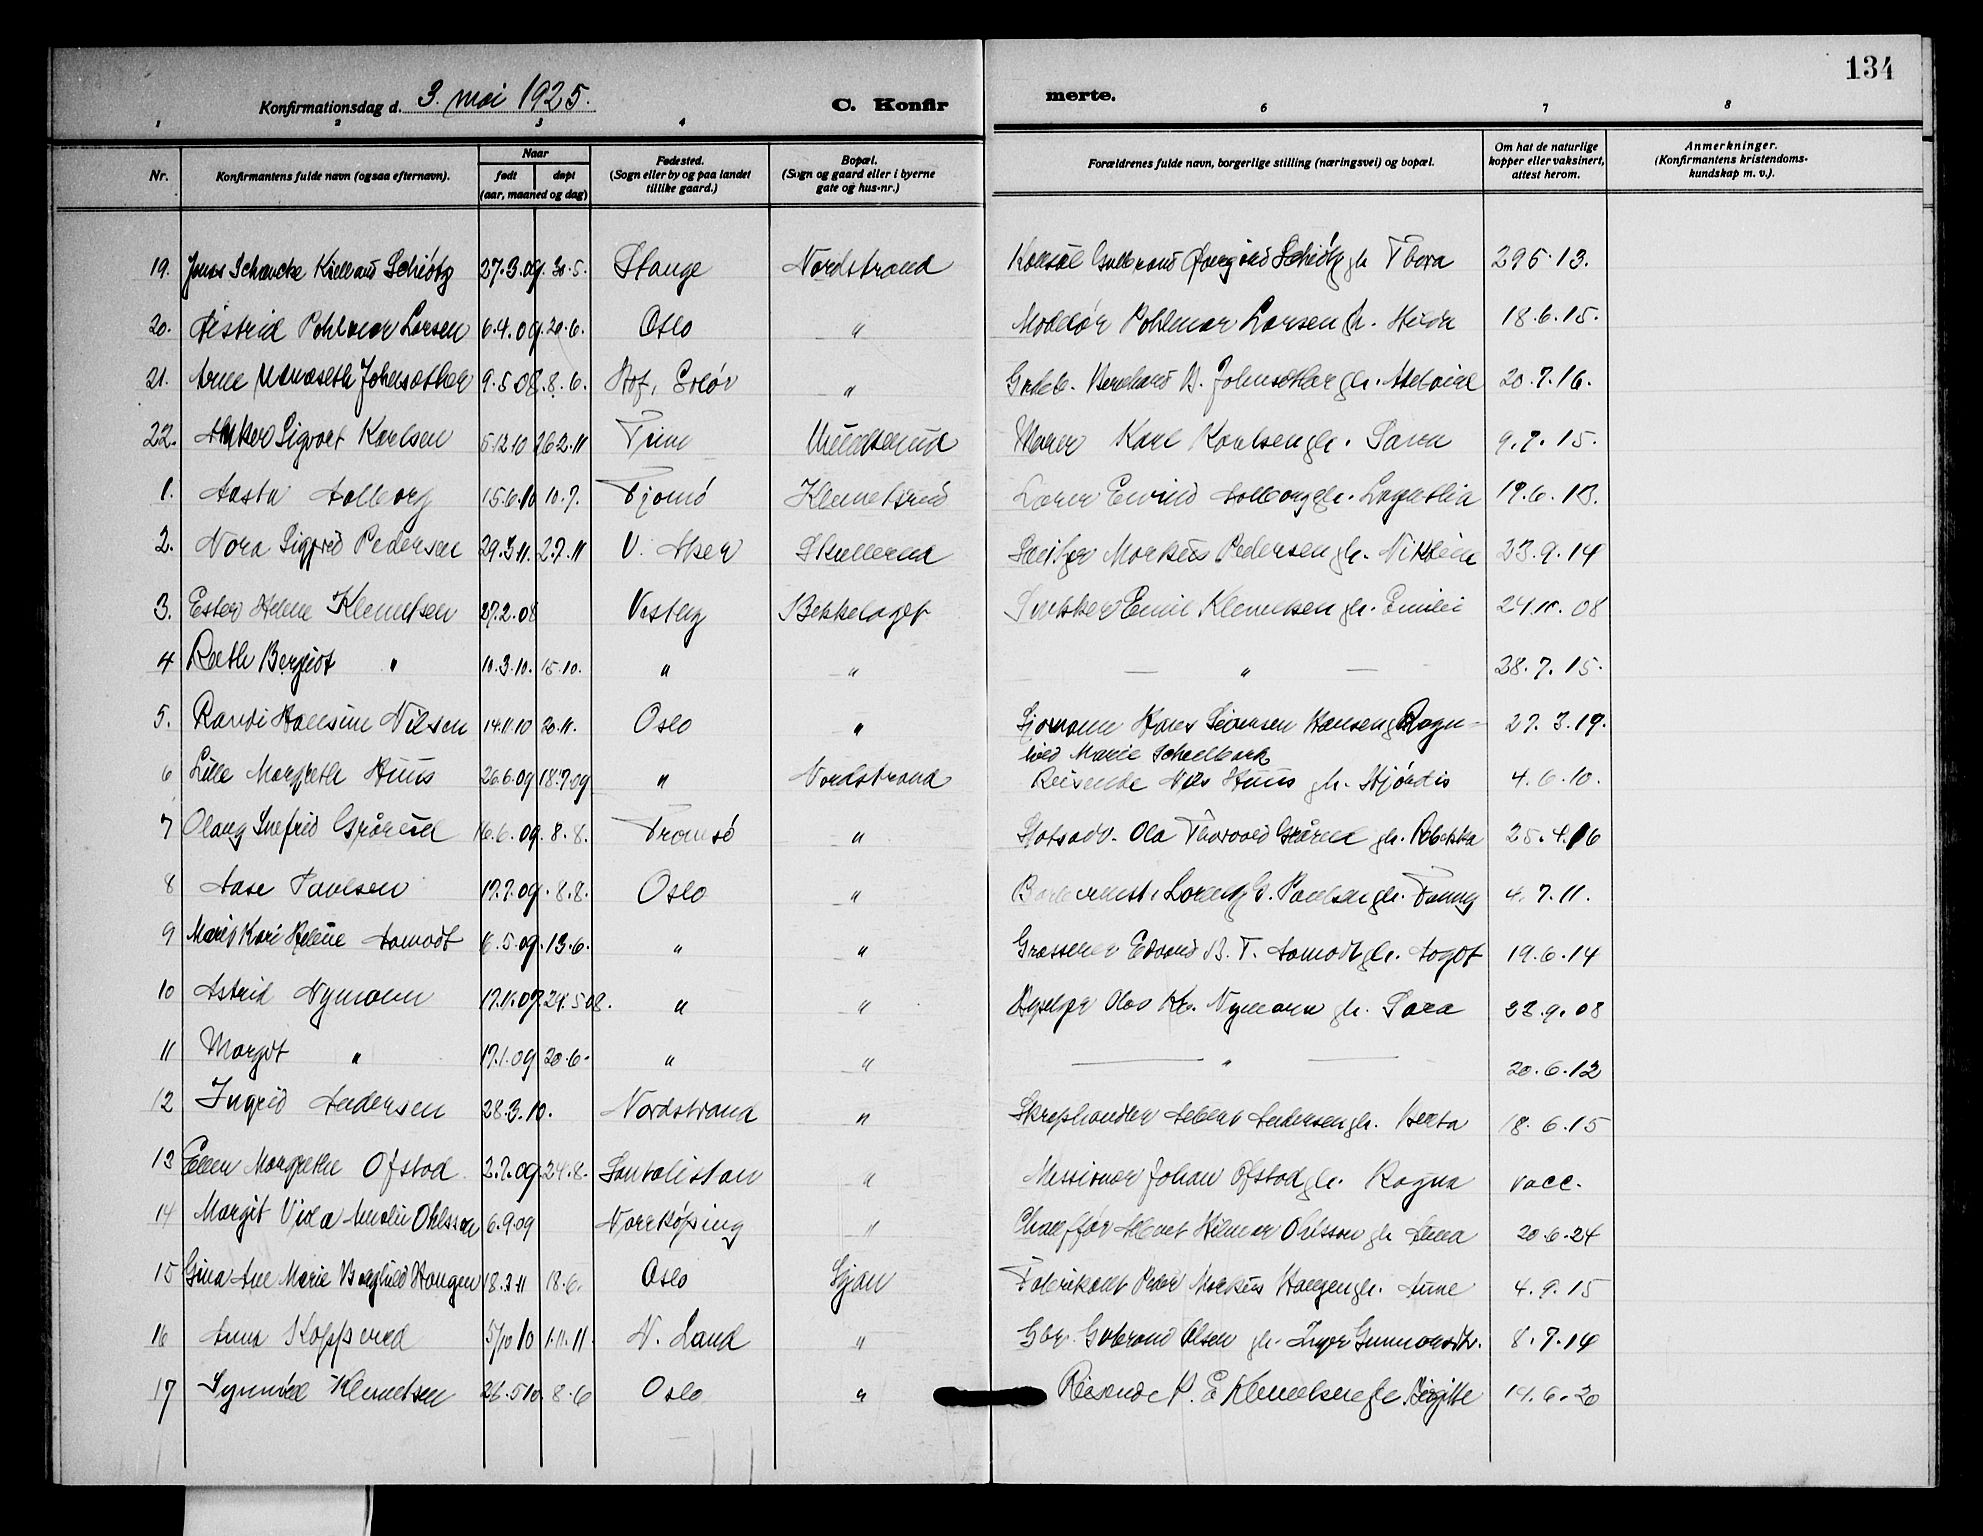 134
Konfirmationsdag d. 3. mai 1925. C. Konfir merte.
1 2 3 4 6 7 8
Nr. Konfirmantens fulde navn (ogsaa efternavn). Naar født døpt (aar, maaned og dag) Fødested. (Sogn eller by og paa landet tillike gaard.) Bopæl. (Sogn og gaard eller i byerne gate og hus-nr.) Forældrenes fulde navn, borgerlige stilling (næringsvei) og bopæl. Om hat de naturlige kopper eller vaksinert, attest herom. Anmerkninger. (Konfirmantens kristendoms-kundskap m. v.).
19. Jonas Schancke Kielland Schiötz 27.3.09. 30.5. Stange Nordstrand Konsul Schiötz gh. Thora 295.13.
20. Astrid Pohlmar Larsen 6.4.09. 20.6. Oslo " Pohlmar Larsen gh. 18.6.15.
21. Arne Johnsæther 9.5.08. 8.6. Hof, Solør " Bernhard Johnsæther gh. 20.7.16.
22. Sigvart Karlsen 5.12.10 26.2.11 Munkerud Maler Karl Karlsen gh. Sara 9.7.15.
1. Aasta Aalborg 15.6.10 10.7. Tjømö Klemetsrud Lærer Eivind Aalborg gh. 19.6.13.
2. Nora Sigfrid Pedersen 29.3.11. 2.7.11 V. Aker Skullerud Markus Pedersen gh. 23.9.14
3. Ester Helene Klemetsen 27.2.08 Vestby Bekkelaget Snekker Emil Klemetsen gh. Emilie 24.10.08
4 Ruth Bergliot " 10.3.10. 15.10. " " — " — 28.7.15.
5. Randi Hansine Nilsen 14.11.10 20.11. Oslo " Sjømann Hans Hansen gh. Ragn-
hild Marie 27.3.19.
6 Lille Margrethe Huus 26.6.09 18.7.09 " Nordstrand Reisende Nils Huus gh. Hjördis 4.6.10.
7 Olaug Snefrid Grårud 16.6.09. 8.8. Tromsö " Ola Thorvald Grårud gh. Rebekka 25.4.16
8 Aase Paulsen 17.7.09. 8.8. Oslo " Lorentz Paulsen gh. Fanny 4.7.11.
9 Kari Helene Aamodt 6.5.09. 13.6. " " Grosserer Edvard B. T. Aamodt gh. Aagot 19.6.14
10 Astrid Nymann 17.11.07. 24.5.08. " " Olav Nymann gh. Sara 23.9.08
11 Margot " 17.1.09 20.6. " " — " — 20.6.12
12 Ingrid Andersen 28.3.10. Nordstrand " Skraphandler Andersen gh. Berta 18.6.15
13 Ellen Margrethe Ofstad 2.7.09. 24.8. Santalistan " Missionær Johan Ofstad gh. Ragna vacc.
14 Margit Viola Amalie Ohlsson 6.9.09 Norrköping " Chaufför Hilmar Ohlsson gh. Anna 20.6.24
15 Gina Ane Marie Borghild Haugen 18.3.11 18.6. Oslo Ljan Fabrikant Peder Markus Haugen gh. Anne 4.9.15
16 Anna Kopperud 5/10 10 1.11.11. N. Land " Gbr. Gulbrand Olsen gh. Inger Gunmarsdtr. 8.7.14
17 Synnöve Klemetsen 26.5.10. 8.6 Oslo " Reisende P. E. Klemetsen gh. Birgitte 14.6.20